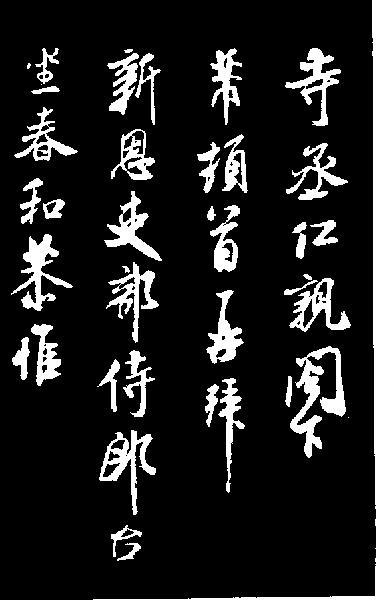 寺丞仁親閣下
芾頓首再拜
新恩吏部侍郎台
坐春和恭惟